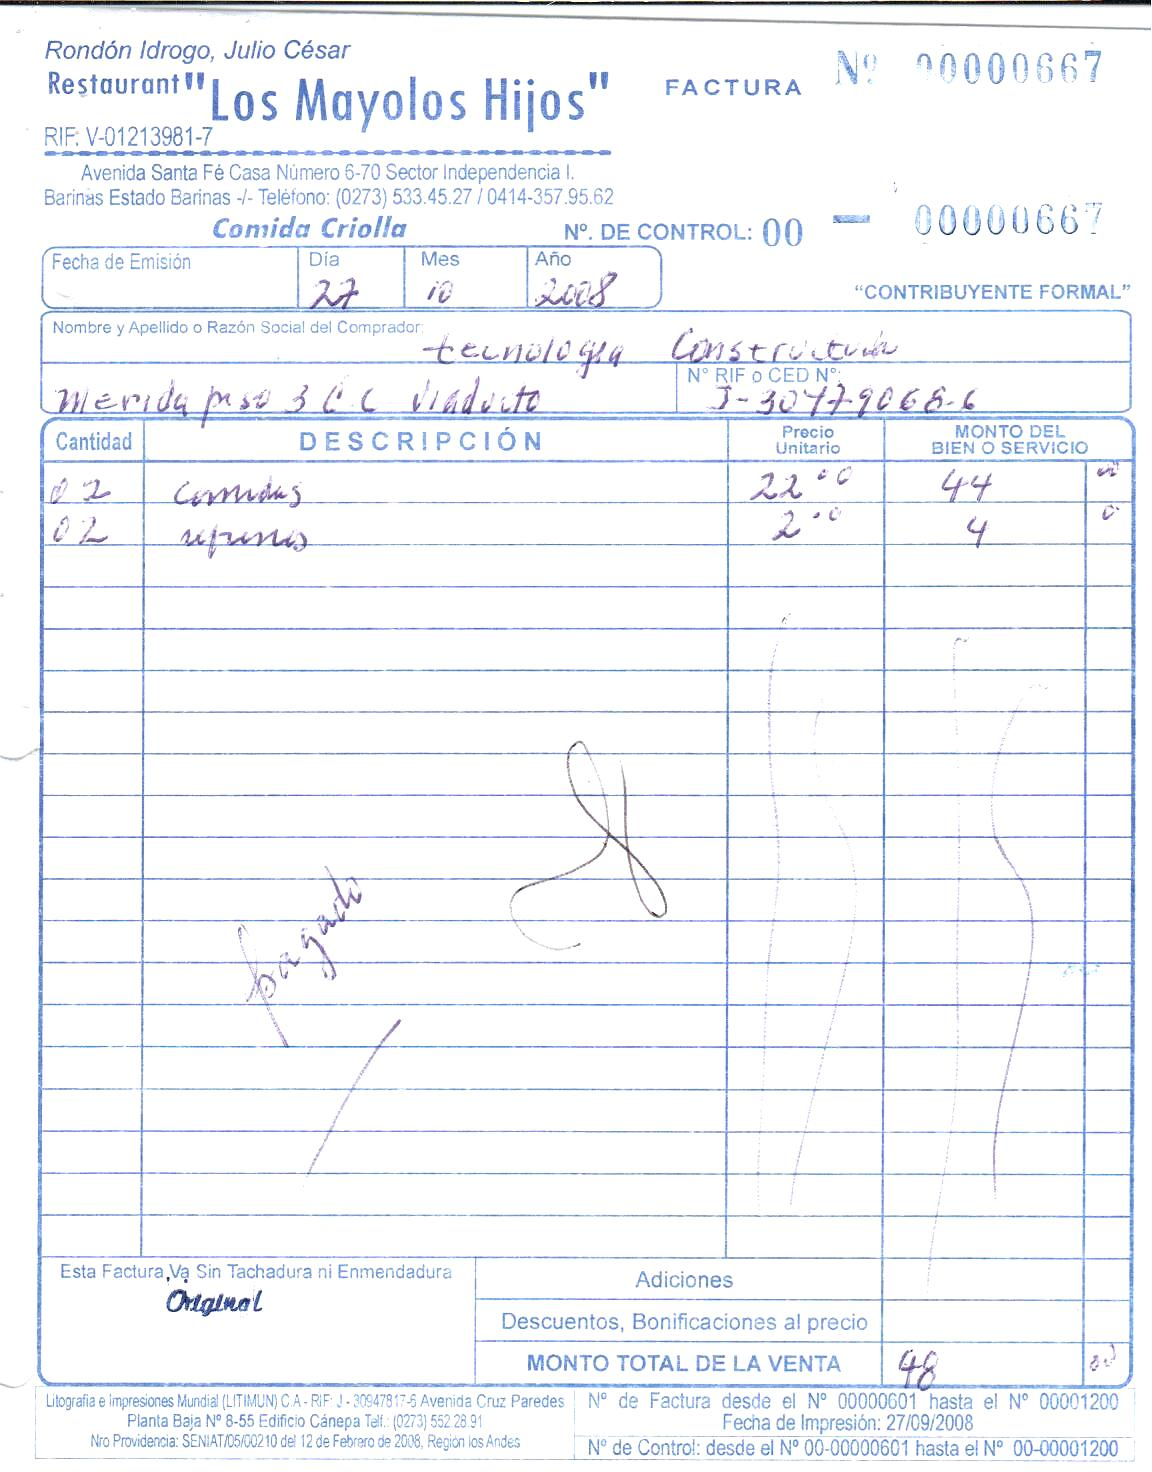 Rondón Idrogo, Julio César
Restaurant "Los Mayolos Hijos"
RIF: V-01213981-7
FACTURA
Nº 00000667
Avenida Santa Fé Casa Número 6-70 Sector Independencia I.
Barinas Estado Barinas -/- Teléfono: (0273) 533.45.27 / 0414-357.95.62
Comida Criolla
Nº. DE CONTROL: 00 - 00000667
Fecha de Emisión Día Mes Año
27 10 2008
"CONTRIBUYENTE FORMAL"
Nombre y Apellido o Razón Social del Comprador:
tecnologia Constructura
Nº RIF o CED Nº:
Merida piso 3 C C Viaducto J-30479068-6
Cantidad DESCRIPCIÓN Precio Unitario MONTO DEL BIEN O SERVICIO
02 Comidas 22 00 44 00
02 refrescos 2 00 4 0
pagado
Esta Factura, Va Sin Tachadura ni Enmendadura
Original
Adiciones
Descuentos, Bonificaciones al precio
MONTO TOTAL DE LA VENTA 48 00
Litografia e Impresiones Mundial (LITIMUN) C.A - RIF: J - 30947817-6 Avenida Cruz Paredes
Planta Baja Nº 8-55 Edificio Cánepa Telf.: (0273) 552 28 91
Nro Providencia: SENIAT/05/00210 del 12 de Febrero de 2008, Región los Andes
Nº de Factura desde el Nº 00000601 hasta el Nº 00001200
Fecha de Impresión: 27/09/2008
Nº de Control: desde el Nº 00-00000601 hasta el Nº 00-00001200